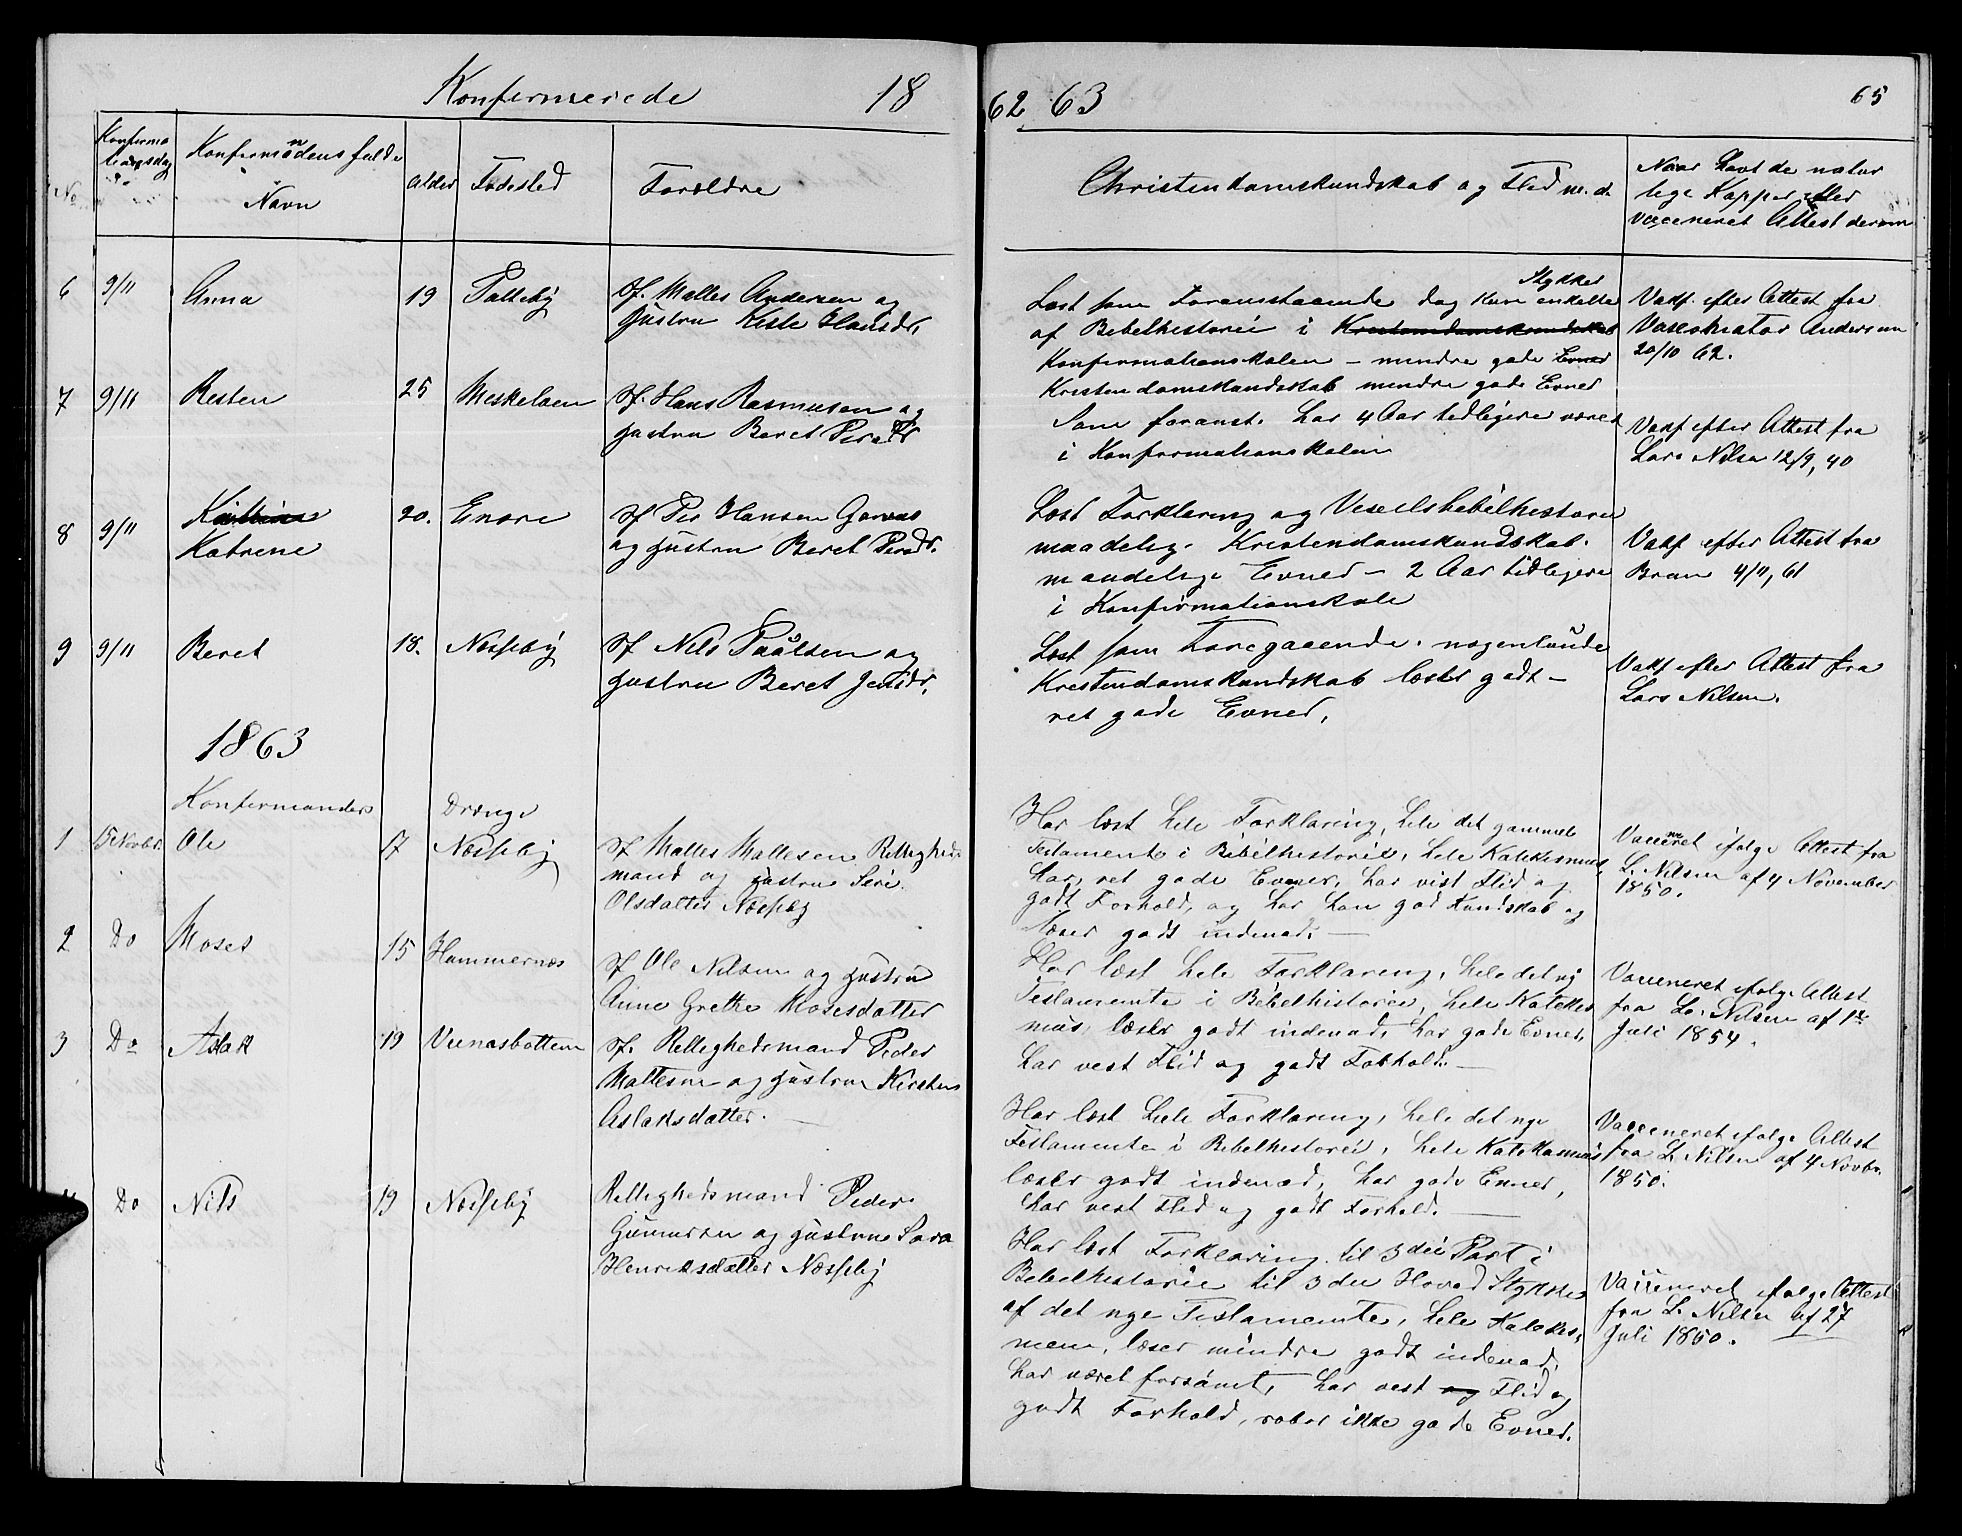 Konfirmerede 18 62 63
65
No
Konfirma
tionsdag
Konfirmandens fulde
Navn
alder
Fødested
Forældre
Christendomskundskab og Flid m. d.
Naar havt de natur
lige Kopper eller
vacceneret Attest derom
6 9/11 Anna 19
Af. Mattis Andersen og
Hustru Hansdr.
Læst som Foranstaaende dog kun enkelte Stykker
af Bibelhistorie i Kristendomskundskab
Konfirmationskolen – mindre gode Evner
Kristendomskundskab mindre gode Evner
Vakf. efter Attest fra
Andersen
20/10 62.
7 9/11 25
Af. Hans Rasmussen og
Hustru Beret
Som foranst. har 4 Aar tidligere været
i Konfirmationskolen
Vakf efter Attest fra
Lars Nilsen 12/9, 40
8 9/11
Katrine 20. Enare
Af Per Hansen
og Hustru Beret Persdr.
Læst Forklaring og
maadelig. Kristendomskundskab.
maadelige Evner – 2 Aar tidligere
i Konfirmationskole
Vakf efter Attest fra
4/11, 61
9 9/11 Beret 18. Næsseby
Af Nils Paulsen og
Hustru Beret
Læst som Foregaaende. nogenlunde
Kristendomskundskab læser godt –
ret gode Evner.
Vakf efter Attest fra
Lars Nilsen.
1863
Konfirmander Drenge
1 15 Novbr. Ole 17 Næsseby
Af Mattis Mattesen
mand og Hustrue
Olsdatter Næsseby
Har læst hele Forklaring, hele det gammele
Testamente i Bibelhistorie, hele Katekismus,
har ret gode Evner, har vist Flid og
godt Forhold, og har han god Kundskab og
læser godt indenad. –
Vacceneret ifølge Attest fra
L. Nilsen af 4 November
1850.
2 Do Moses 15 Hammernæs
Af Ole Nilsen og Hustrue
Anne Grethe Mosesdatter
Har læst hele Forklaring, hele det ny
Testamente i Bibelhistorie, hele Katekis
mus, læser godt indenad, har gode Evner,
har vest Flid og godt Forhold. –
Vacceneret ifølge Attest
fra L. Nilsen af 1te
Juli 1854.
3 Do Aslak 19
Af. Peder
Mattesen og Hustrue Kirsten
Aslaksdatter. –
Har læst hele Forklaring, hele det nye
Testamente i Bibelhistorie, hele Katekismus
læser godt indenad, har gode Evner,
har vest Flid og godt Forhold. –
Vacceneret ifølge Attest
fra L. Nilsen af 4 Novbr.
1850.
Do Nils 19 Næsseby
Peder
og Hustrue Sara
Henriksdatter Næsseby
Har læst Forklaring til 3die Part i
Bebelhistorie til 3die Hoved Stykke
af det nye Testamente, hele Katekis,
men, læser mindre godt indenad,
har været forsømt, har vest og Flid og
godt Forhold, ikke gode Evner.
Vacceneret ifølge Attest
fra L. Nilsen af 27
Juli 1850.